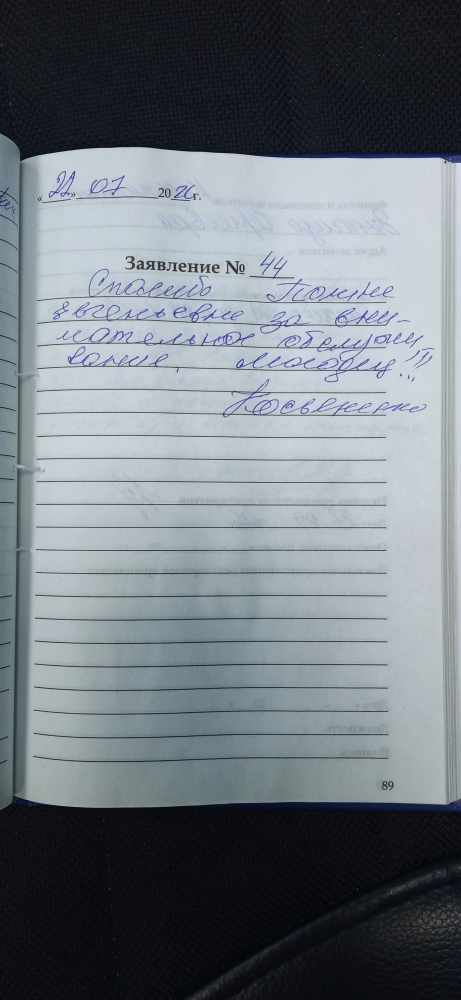 «22» 07 2026 г.
Заявление № 44
Спасибо Полине
Евгеньевне за вни-
мательное обслужи
вание. Молодец!!!
89